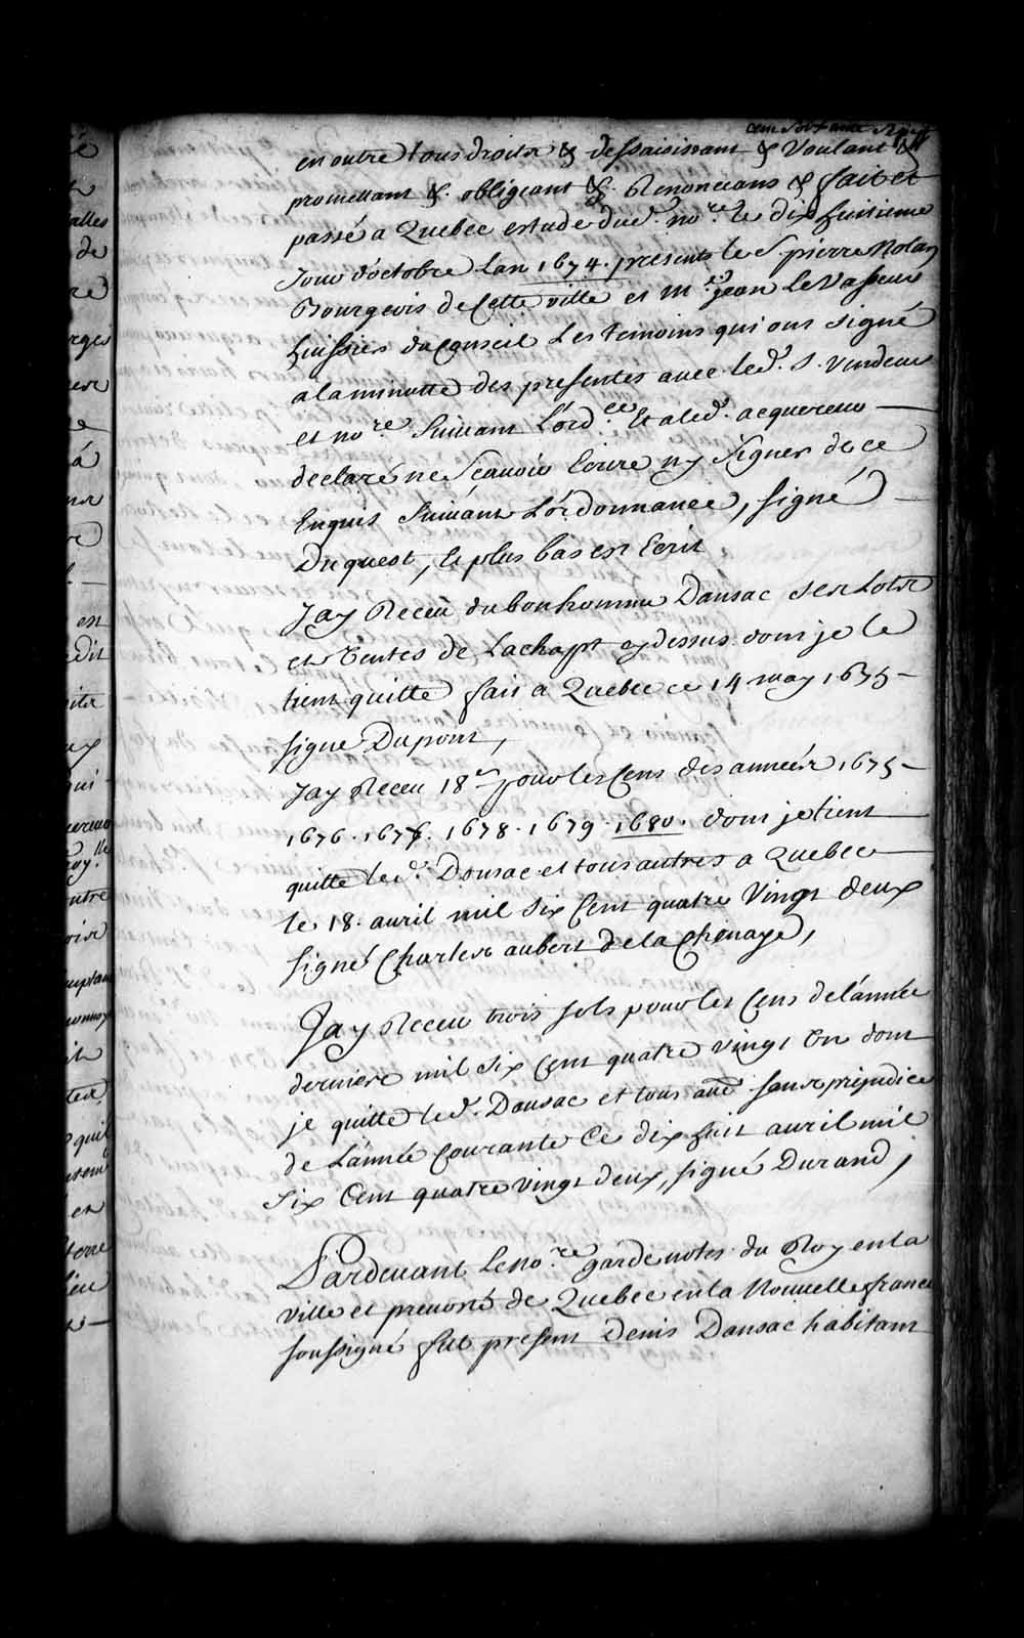 cent soixante
en outre tous droits & dessaisissant & Voulant &
promettant &. obligeant &. Renoncans & fait et
passé a Quebec estude dud. no.re le dix huitieme
Jour d'octobre Lan 1674. presents le S. pierre Nolan
Bourgeois de Cette ville et M.e Jean le Vasseur
huissier du Conseil Les temoins qui ont signé
a la minutte des presentes avec led. S. Vendeur
et no.re Suivant L'ord.ce & a led. acquereur
declaré ne Scavoir Ecrire ny Signer de ce
Enquis Suivant L'ordonnance, signé
Duquest, & plus bas est Ecrit
J'ay Receu du bonhomme Dansac ses Lots
et Ventes de Lachapt cy dessus dont je le
tient quitte fait a Quebec ce 14 may 1675
signe Dupont,
J'ay Receu 18 s pour les Cens des années 1675
1676. 1677. 1678. 1679. 1680. dont je tient
quitte led. Dansac et tous autres a Quebec
le 18. avril mil Six Cent quatre Vingt deux
signé Charles aubert de la Chenaye,
J'ay Receu trois sols pour les Cens de l'année
derniere mil Six Cent quatre vingt Un dont
je quitte led. Dansac et tous au.e sans prejudice
de L'année Courante Ce dix huit avril mil
Six Cent quatre vingt deux, signé Durand,
Pardevant Le no.re gardenotes du Roy en la
ville et prevosté de Quebec en la Nouvelle france
soussigné fut present Denis Dansac habitant
alles
de
rges
à
est
edit
ux
qui
ontre
quil
en
terre
lieu